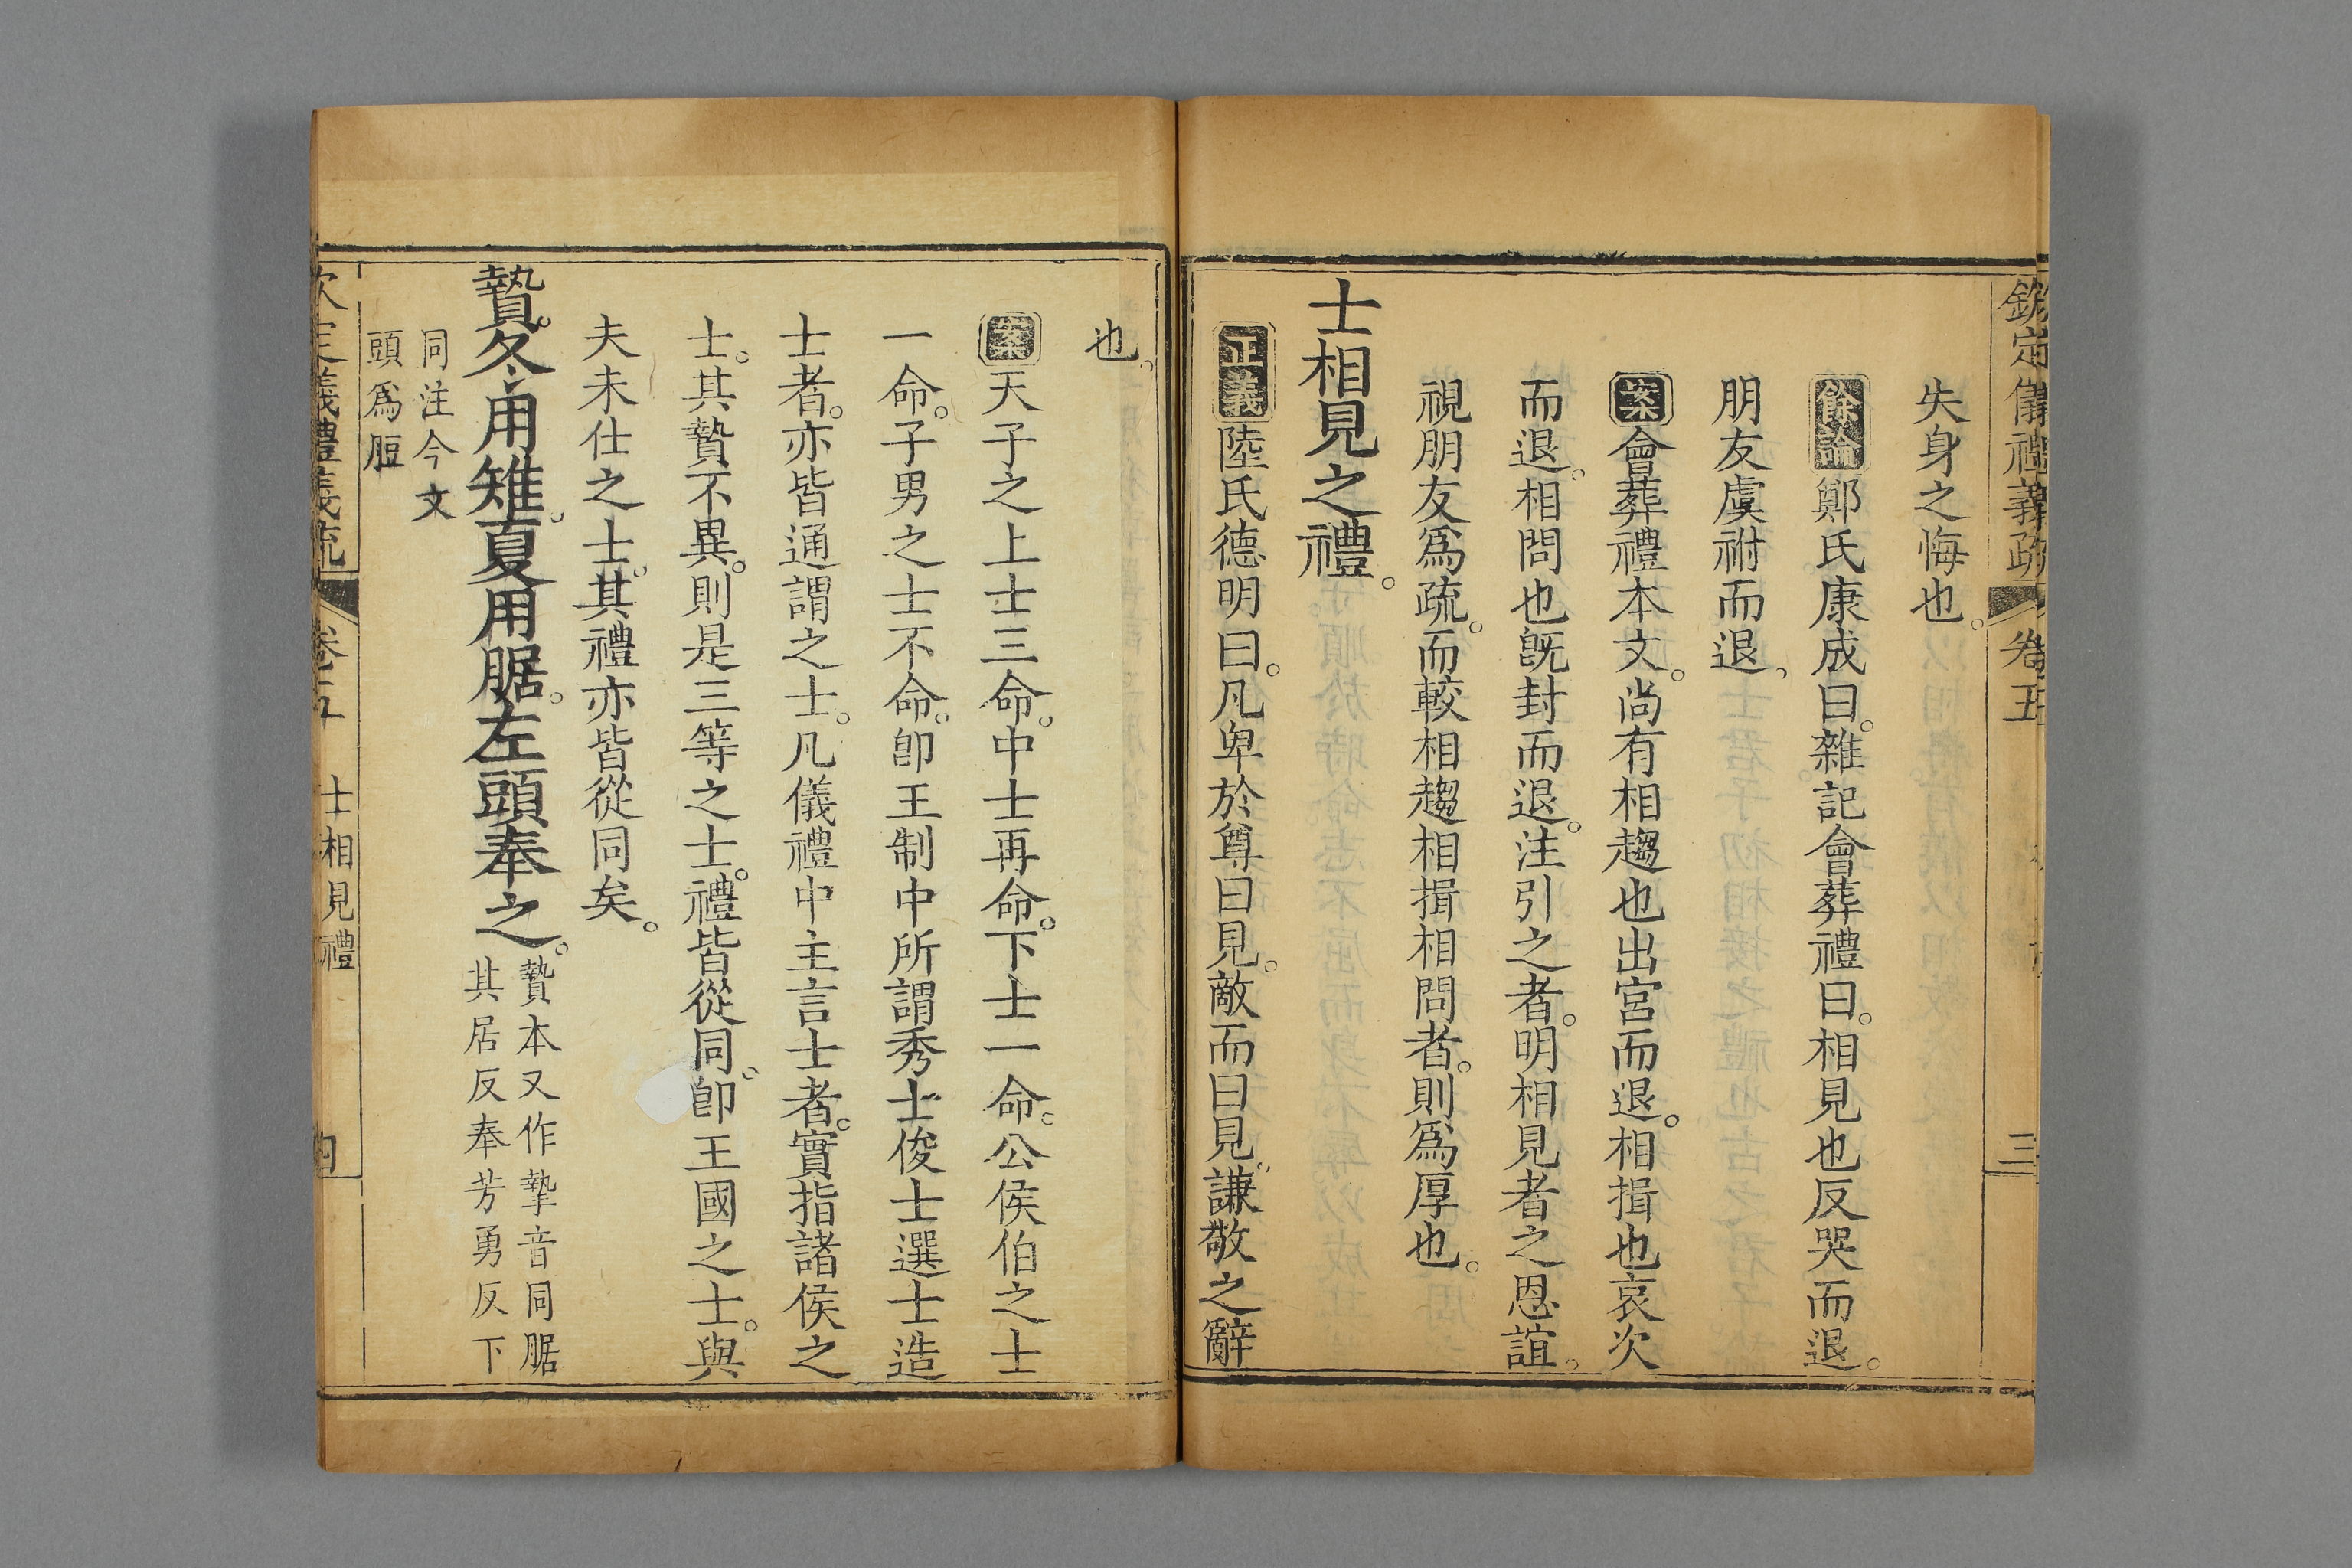 欽定儀禮義疏 卷五 三
失身之悔也。
餘論鄭氏康成曰。雜記會葬禮曰。相見也反哭而退。
朋友虞祔而退。
案會葬禮本文。尚有相趨也出宮而退。相揖也哀次
而退。相問也旣封而退。注引之者。明相見者之恩誼。
視朋友爲疏。而較相趨相揖相問者。則爲厚也。
士相見之禮。
正義陸氏德明曰。凡卑於尊曰見。敵而曰見。謙敬之辭
也。
案天子之上士三命。中士再命。下士一命。公侯伯之士
一命。子男之士不命。卽王制中所謂秀士俊士選士造
士者。亦皆通謂之士。凡儀禮中主言士者。實指諸侯之
士。其贄不異。則是三等之士。禮皆從同。卽王國之士。與
夫未仕之士。其禮亦皆從同矣。
贄。冬用雉。夏用腒。左頭奉之。贄本又作摯音同腒
其居反奉芳勇反下
同注今文
頭爲脰
欽定儀禮義疏 卷五 士相見禮 四